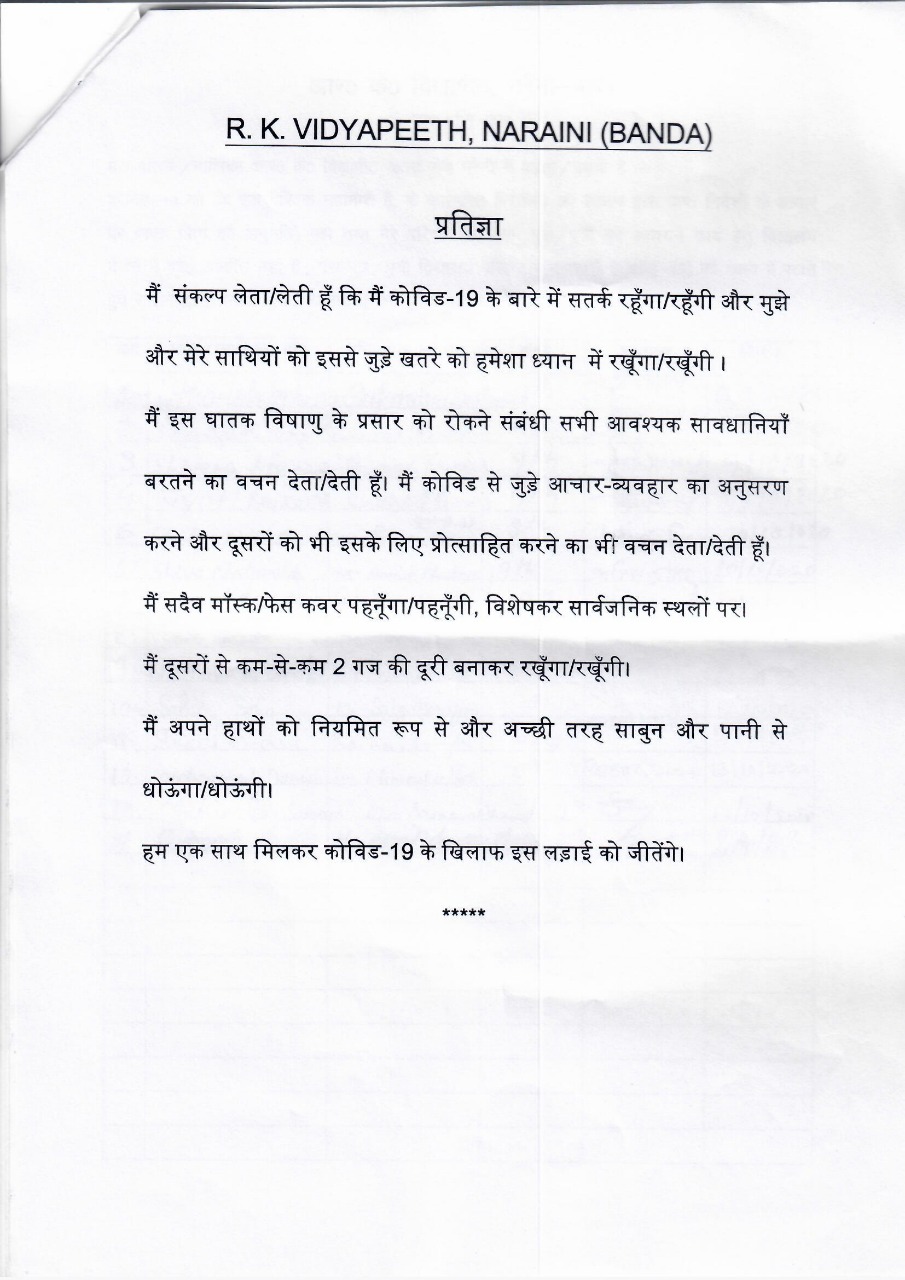 R. K. VIDYAPEETH, NARAINI (BANDA)
प्रतिज्ञा
मैं संकल्प लेता/लेती हूँ कि मैं कोविड-19 के बारे में सतर्क रहूँगा/रहूँगी और मुझे
और मेरे साथियों को इससे जुड़े खतरे को हमेशा ध्यान में रखूँगा/रखूँगी ।
मैं इस घातक विषाणु के प्रसार को रोकने संबंधी सभी आवश्यक सावधानियाँ
बरतने का वचन देता/देती हूँ। मैं कोविड से जुड़े आचार-व्यवहार का अनुसरण
करने और दूसरों को भी इसके लिए प्रोत्साहित करने का भी वचन देता/देती हूँ।
मैं सदैव मॉस्क/फेस कवर पहनूँगा/पहनूँगी, विशेषकर सार्वजनिक स्थलों पर।
मैं दूसरों से कम-से-कम 2 गज की दूरी बनाकर रखूँगा/रखूँगी।
मैं अपने हाथों को नियमित रूप से और अच्छी तरह साबुन और पानी से
धोऊंगा/धोऊंगी।
हम एक साथ मिलकर कोविड-19 के खिलाफ इस लड़ाई को जीतेंगे।
*****